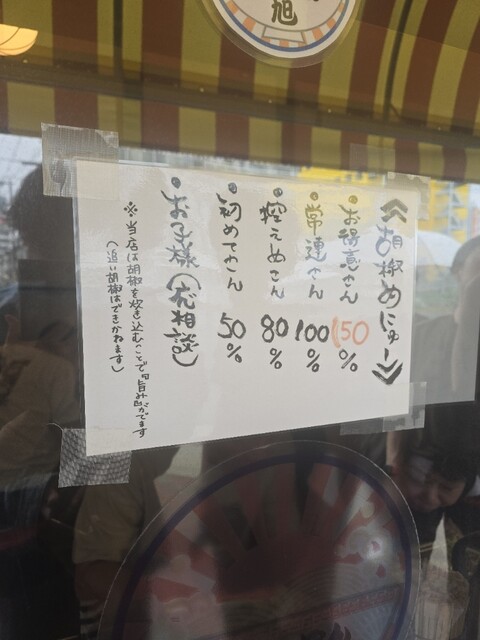 旭
《胡椒めにゅー》
・お得意さん 150%
・常連さん 100%
・控えめさん 80%
・初めてさん 50%
・お子様(応相談)
※当店は胡椒を炊き込むことで旨みがでます
(追い胡椒はできかねます)